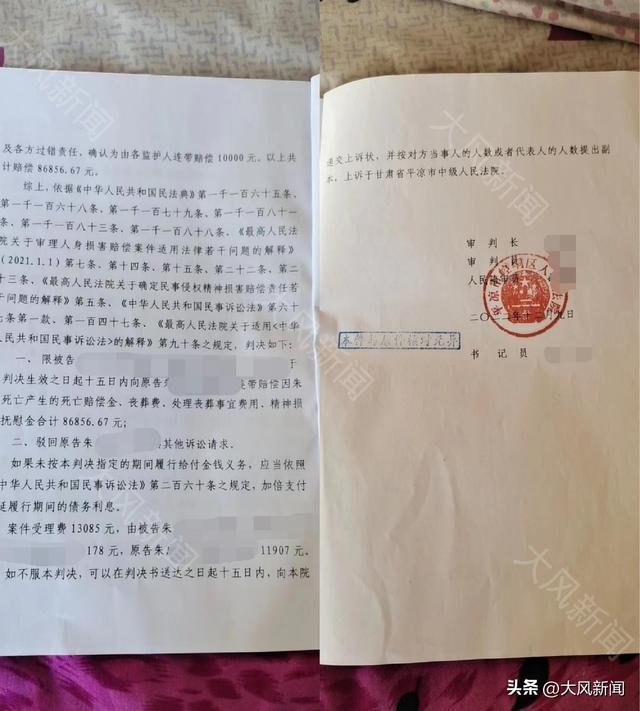 及各方过错责任，确认为由各监护人连带赔偿 10000 元。以上共
计赔偿 86856.67 元；
综上，依据《中华人民共和国民法典》第一千一百六十五条、
第一千一百六十八条、第一千一百七十九条、第一千一百八十一
条、第一千一百八十三条、第一千一百八十八条、《最高人民法院
关于审理人身损害赔偿案件适用法律若干问题的解释》
(2021.1.1) 第七条、第十四条、第十五条、第二十二条、第二
十三条、《最高人民法院关于确定民事侵权精神损害赔偿责任若
干问题的解释》第五条、《中华人民共和国民事诉讼法》第六十
七条第一款、第一百四十七条、《最高人民法院关于适用<中华
人民共和国民事诉讼法>的解释》第九十条之规定，判决如下：
一、限被告
判决生效之日起十五日内向原告 连带赔偿因朱
死亡产生的死亡赔偿金、丧葬费、处理丧葬事宜费用、精神损
抚慰金合计 86856.67 元；
二、驳回原告朱 其他诉讼请求。
如果未按本判决指定的期间履行给付金钱义务，应当依照
中华人民共和国民事诉讼法》第二百六十条之规定，加倍支付
延履行期间的债务利息。
案件受理费 13085 元，由被告朱
178 元，原告朱 11907 元。
如不服本判决，可以在判决书送达之日起十五日内，向本院
递交上诉状，并按对方当事人的人数或者代表人的人数提出副
本，上诉于甘肃省平凉市中级人民法院。
审 判 长
审 判 员
人民陪审员
二〇二二年十二月九日
本件与原件核对无异
书 记 员
大风新闻
大风新闻
大风新闻
大风新闻
大风新闻
大风新闻
头条 @大风新闻